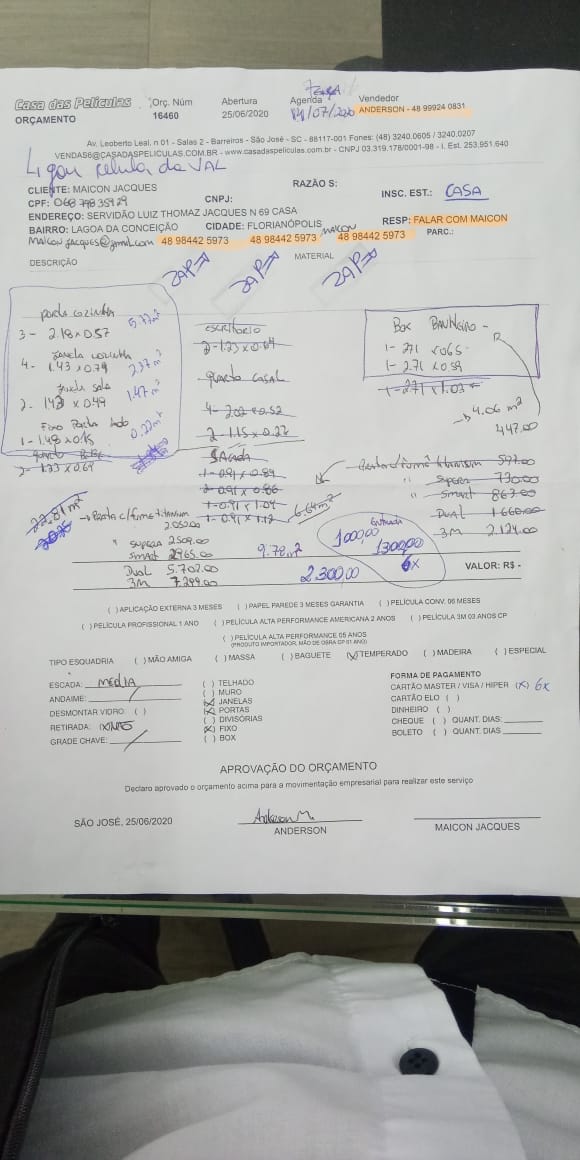 Casa das Películas Orç. Núm Abertura Agenda Vendedor
ORÇAMENTO 16460 25/06/2020 /07/2020 ANDERSON - 48 99924 0831
Av. Leoberto Leal, n 01 - Salas 2 - Barreiros - São José - SC - 88117-001 Fones: (48) 3240.0605 / 3240.0207
VENDAS6@CASADASPELICULAS.COM.BR - www.casadaspeliculas.com.br - CNPJ 03.319.178/0001-98 - I. Est. 253.951.640
Ligou retula da VAL
CLIENTE: MAICON JACQUES RAZÃO S: INSC. EST.: CASA
CPF: 068 798 359 29 CNPJ:
ENDEREÇO: SERVIDÃO LUIZ THOMAZ JACQUES N 69 CASA
BAIRRO: LAGOA DA CONCEIÇÃO CIDADE: FLORIANÓPOLIS RESP: FALAR COM MAICON
Maicon jacques@gmail.com 48 98442 5973 48 98442 5973 maicon 48 98442 5973 PARC.:
DESCRIÇÃO MATERIAL
ZAP ZAP ZAP
porta cozinha
3 - 2.18 x 0.57
janela cozinha
4. 1.43 x 0.79 2.37 m²
janela sala
2. 1.43 x 0.49 1.47 m²
Fixo Porta lado
1 - 1.48 x 0.15 0.22 m²
2 - 1.33 x 0.69
escritorio
quarto casal
4 - 2.02 x 0.52
2 - 1.15 x 0.22
SACADA
1 - 0.91 x 0.89
2 - 0.91 x 0.86
1 - 0.91 x 1.04
1 - 0.91 x 1.12 6.64 m²
Box Banheiro -
1 - 2.71 x 0.65
1 - 2.71 x 0.59
1 - 2.71 x 1.03
4.06 m²
447.00
597.00
" Supera 730.00
" Smart 863.00
DUAL 1.660.00
3M 2.124.00
22.81 m²
2.050.00
" Supera 2.509.00
Smart 2965.00 9.78 m²
Dual 5.702.00
3M 7.299.00
Entrada
1000,00
1300,00
6x
2.300,00 VALOR: R$ -
( ) APLICAÇÃO EXTERNA 3 MESES ( ) PAPEL PAREDE 3 MESES GARANTIA ( ) PELÍCULA CONV. 06 MESES
( ) PELÍCULA PROFISSIONAL 1 ANO ( ) PELÍCULA ALTA PERFORMANCE AMERICANA 2 ANOS ( ) PELÍCULA 3M 03 ANOS CP
( ) PELÍCULA ALTA PERFORMANCE 05 ANOS
(PRODUTO IMPORTADOR, MÃO DE OBRA CP 01 ANO)
TIPO ESQUADRIA ( ) MÃO AMIGA ( ) MASSA ( ) BAGUETE (X) TEMPERADO ( ) MADEIRA ( ) ESPECIAL
ESCADA: MEDIA ( ) TELHADO FORMA DE PAGAMENTO
ANDAIME: ( ) MURO CARTÃO MASTER / VISA / HIPER (X) 6x
DESMONTAR VIDRO: ( ) (X) JANELAS CARTÃO ELO ( )
RETIRADA: (X) (X) PORTAS DINHEIRO ( )
( ) DIVISÓRIAS CHEQUE ( ) QUANT. DIAS:
GRADE CHAVE: (X) FIXO BOLETO ( ) QUANT. DIAS
( ) BOX
APROVAÇÃO DO ORÇAMENTO
Declaro aprovado o orçamento acima para a movimentação empresarial para realizar este serviço
SÃO JOSÉ, 25/06/2020 Anderson M.
ANDERSON MAICON JACQUES